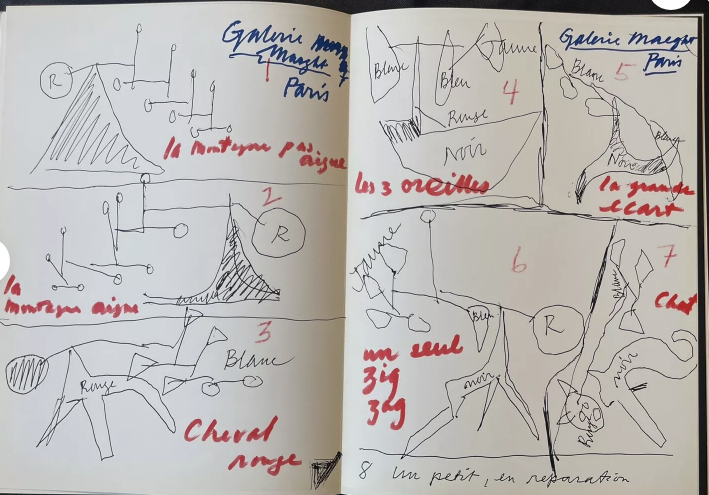 Galerie
Maeght
Paris
1
R
la montagne pas
aigue
2
R
la
montagne aigue
3
Rouge
Blanc
Cheval
rouge
Galerie Maeght
Paris
4
Blanc
Bleu
Jaune
Rouge
Noir
les 3 oreilles
5
Blanc
Blanc
Noir
la grande
ecart
6
Jaune
Bleu
R
noir
un seul
zig
zag
7
Blanc
Chat
noir
Rouge
8 un petit, en reparation